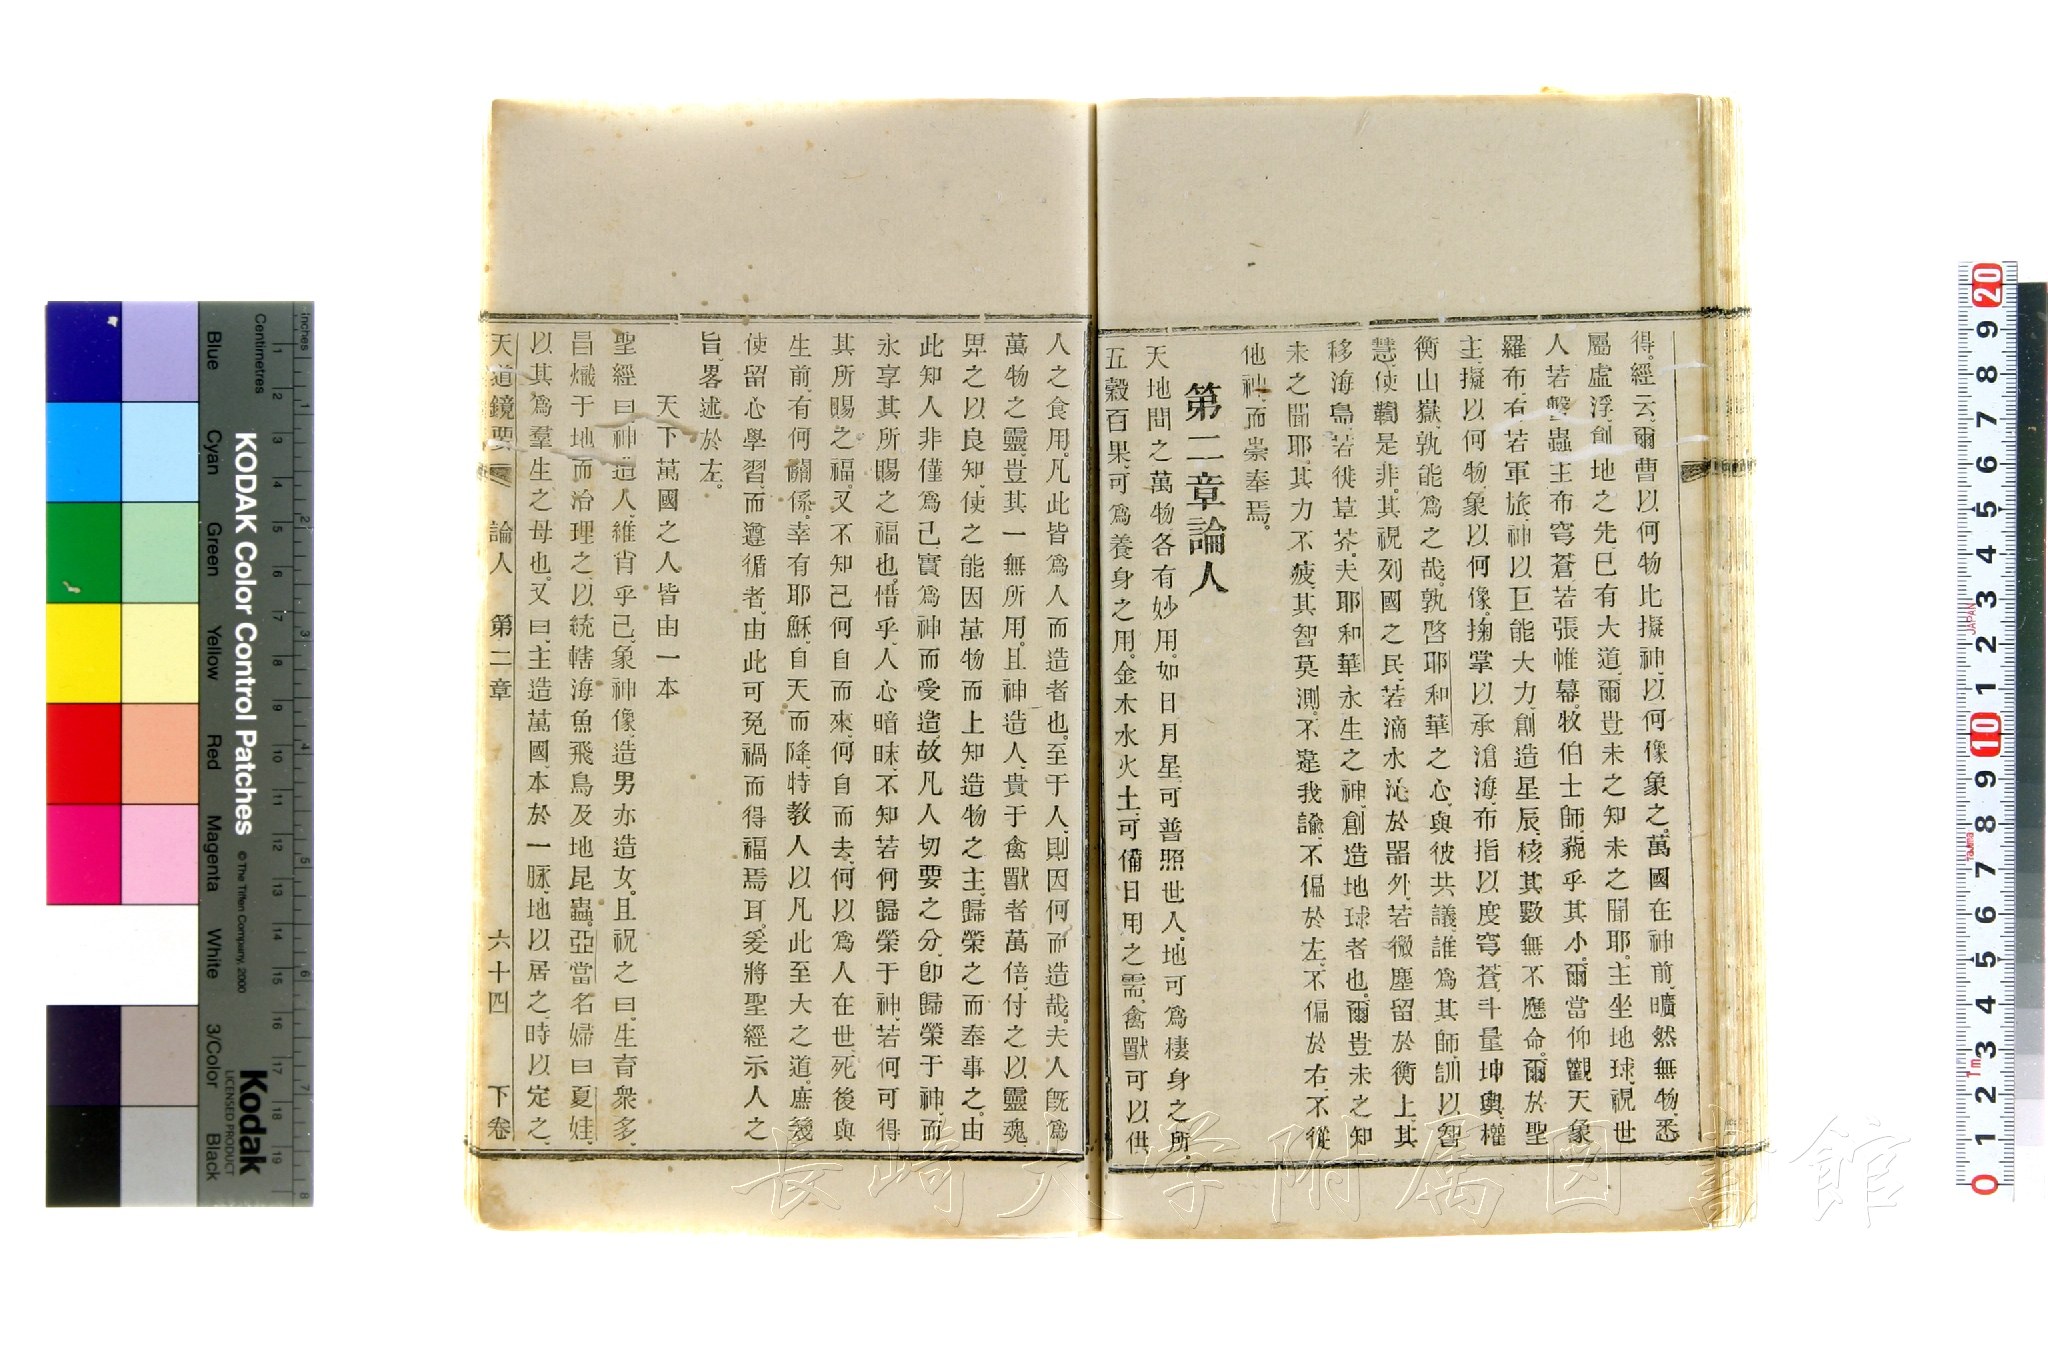 得。經云、爾曹以何物比擬神、以何像象之。萬國在神前、曠然無物、悉
屬虛浮、創地之先、已有大道、爾豈未之知、未之聞耶。主坐地球、視世
人若螌蟲、主布穹蒼、若張帷幕。牧伯士師、藐乎其小。爾當仰觀天象
羅布、有若軍旅、神以巨能大力、創造星辰、核其數、無不應命。爾於聖
主、擬以何物、象以何像。掬掌以承滄海、布指以度穹蒼、斗量坤輿、權
衡山嶽、孰能爲之哉。孰啓耶和華之心、與彼共議、誰爲其師、訓以智
慧、使覩是非。其視列國之民、若滴水沁於器外、若微塵留於衡上、其
移海島、若徙草芥。夫耶和華永生之神、創造地球者也。爾豈未之知
未之聞耶。其力不疲、其智莫測。不違我諭、不偏於左、不偏於右、不從
他神、而崇奉焉。
第二章論人
天地間之萬物、各有妙用。如日月星、可普照世人。地可爲棲身之所
五穀百果、可爲養身之用。金木水火土、可備日用之需、禽獸可以供
人之食用。凡此皆爲人而造者也。至于人、則因何而造哉。夫人旣爲
萬物之靈、豈其一無所用。且神造人、貴于禽獸者萬倍、付之以靈魂
畀之以良知、使之能因萬物而上知造物之主、歸榮之而奉事之。由
此知人非僅爲己、實爲神而受造、故凡人切要之分、卽歸榮于神、而
永享其所賜之福也。惜乎、人心暗昧、不知若何歸榮于神、若何可得
其所賜之福、又不知己何自而來、何自而去、何以爲人在世、死後與
生前、有何關係。幸有耶穌、自天而降、特教人以凡此至大之道。庶幾
使留心學習而遵循者、由此可免禍而得福焉耳。爰將聖經示人之
旨、畧述於左。
天下萬國之人皆由一本
聖經曰、神造人、維肖乎己、象神像、造男亦造女。且祝之曰、生育衆多、
昌熾于地而治理之、以統轄海魚飛鳥及地昆蟲。亞當名婦曰夏娃、
以其爲羣生之母也。又曰、主造萬國、本於一脉、地以居之、時以定之、
天道鏡要 論人 第二章 六十四 下卷
KODAK Color Control Patches
© The Tiffen Company, 2000
Kodak
LICENSED PRODUCT
Inches
Centimetres
Blue Cyan Green Yellow Red Magenta White 3/Color Black
長崎大学附属図書館